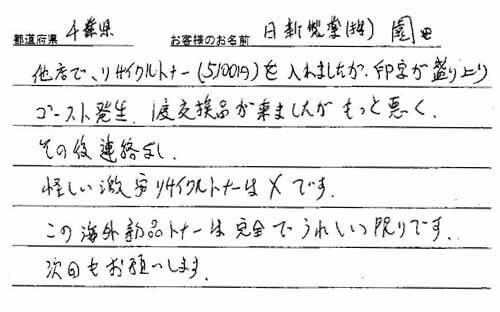 都道府県 千葉県 お客様のお名前 日新製薬(株) 園田
他店で、リサイクルトナー(5100円)を入れましたが、印字が盛り上り
ゴースト発生、1度交換品が来ましたがもっと悪く、
その後連絡なし。
怪しい激安リサイクルトナーは×です。
この海外新品トナーは完全でうれしい限りです。
次回もお願いします。